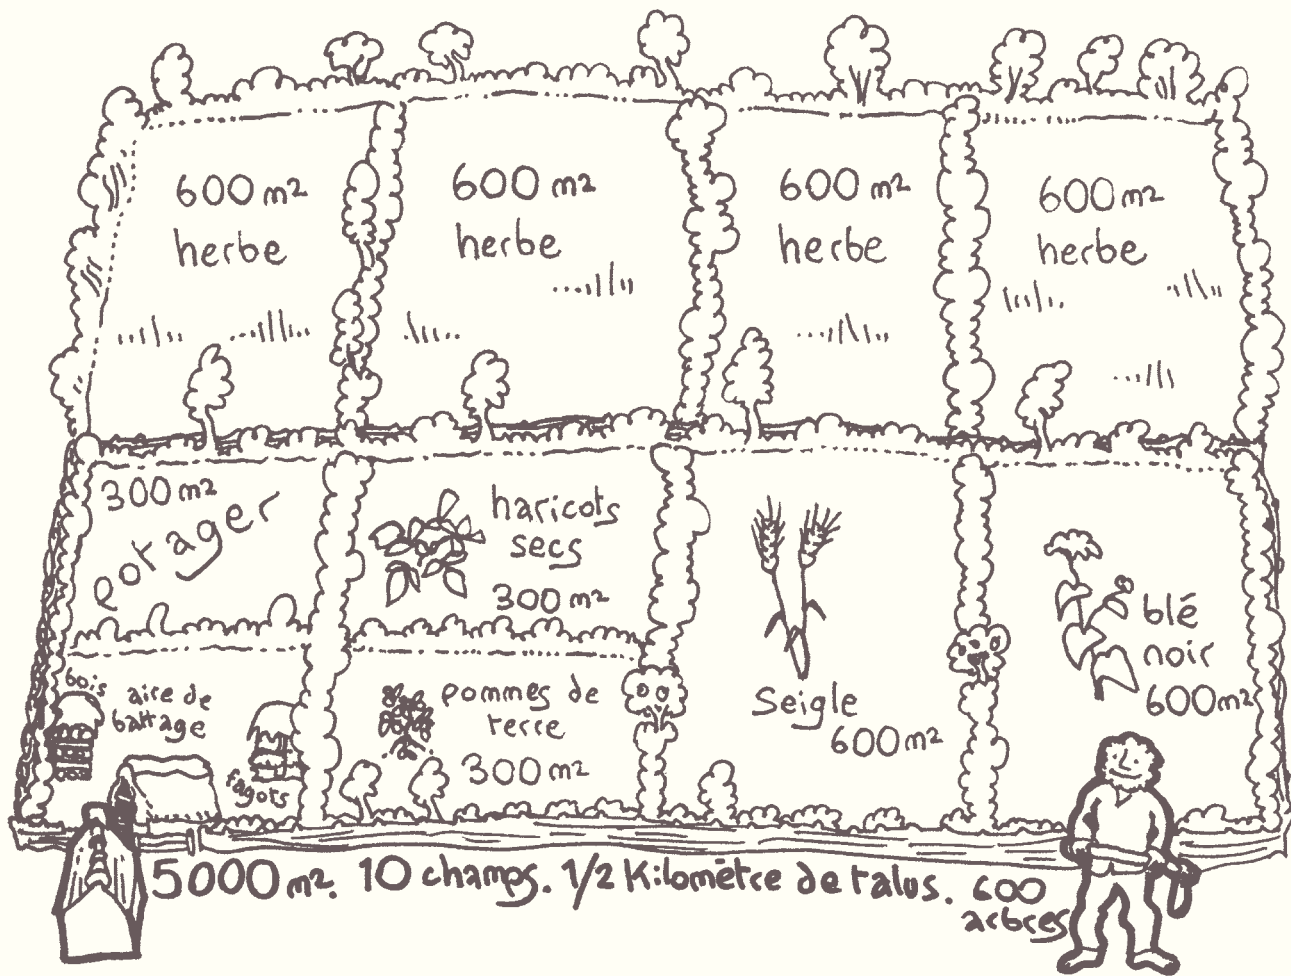 600 m²
herbe
600 m²
herbe
600 m²
herbe
600 m²
herbe
300 m²
potager
haricots
secs
300 m²
bois
aire de
battage
fagots
pommes de
terre
300 m²
Seigle
600 m²
blé
noir
600 m²
5000 m². 10 champs. 1/2 Kilomètre de talus. 600
arbres